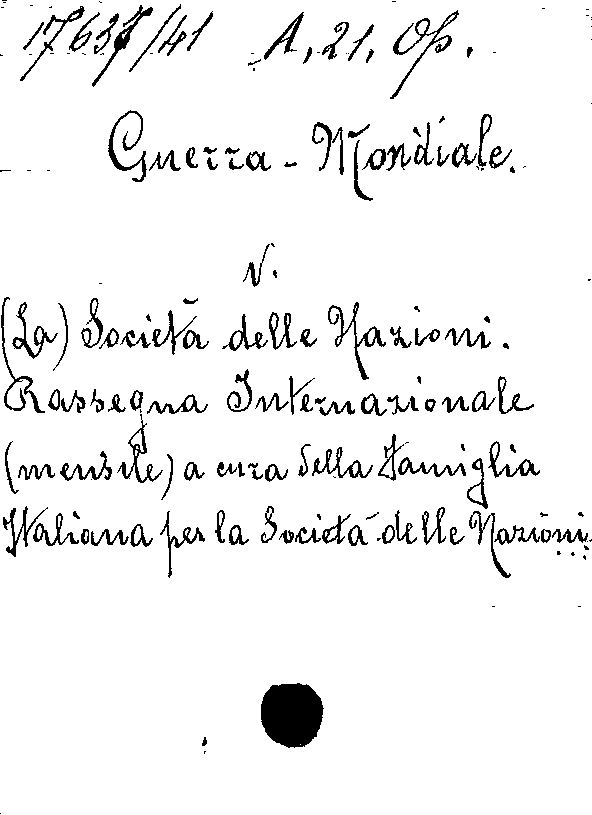 17637/41 A, 21, Op.
Guerra - Mondiale.
V.
(La) Società delle Nazioni.
Rassegna Internazionale
(mensile) a cura della Famiglia
Italiana per la Società delle Nazioni...